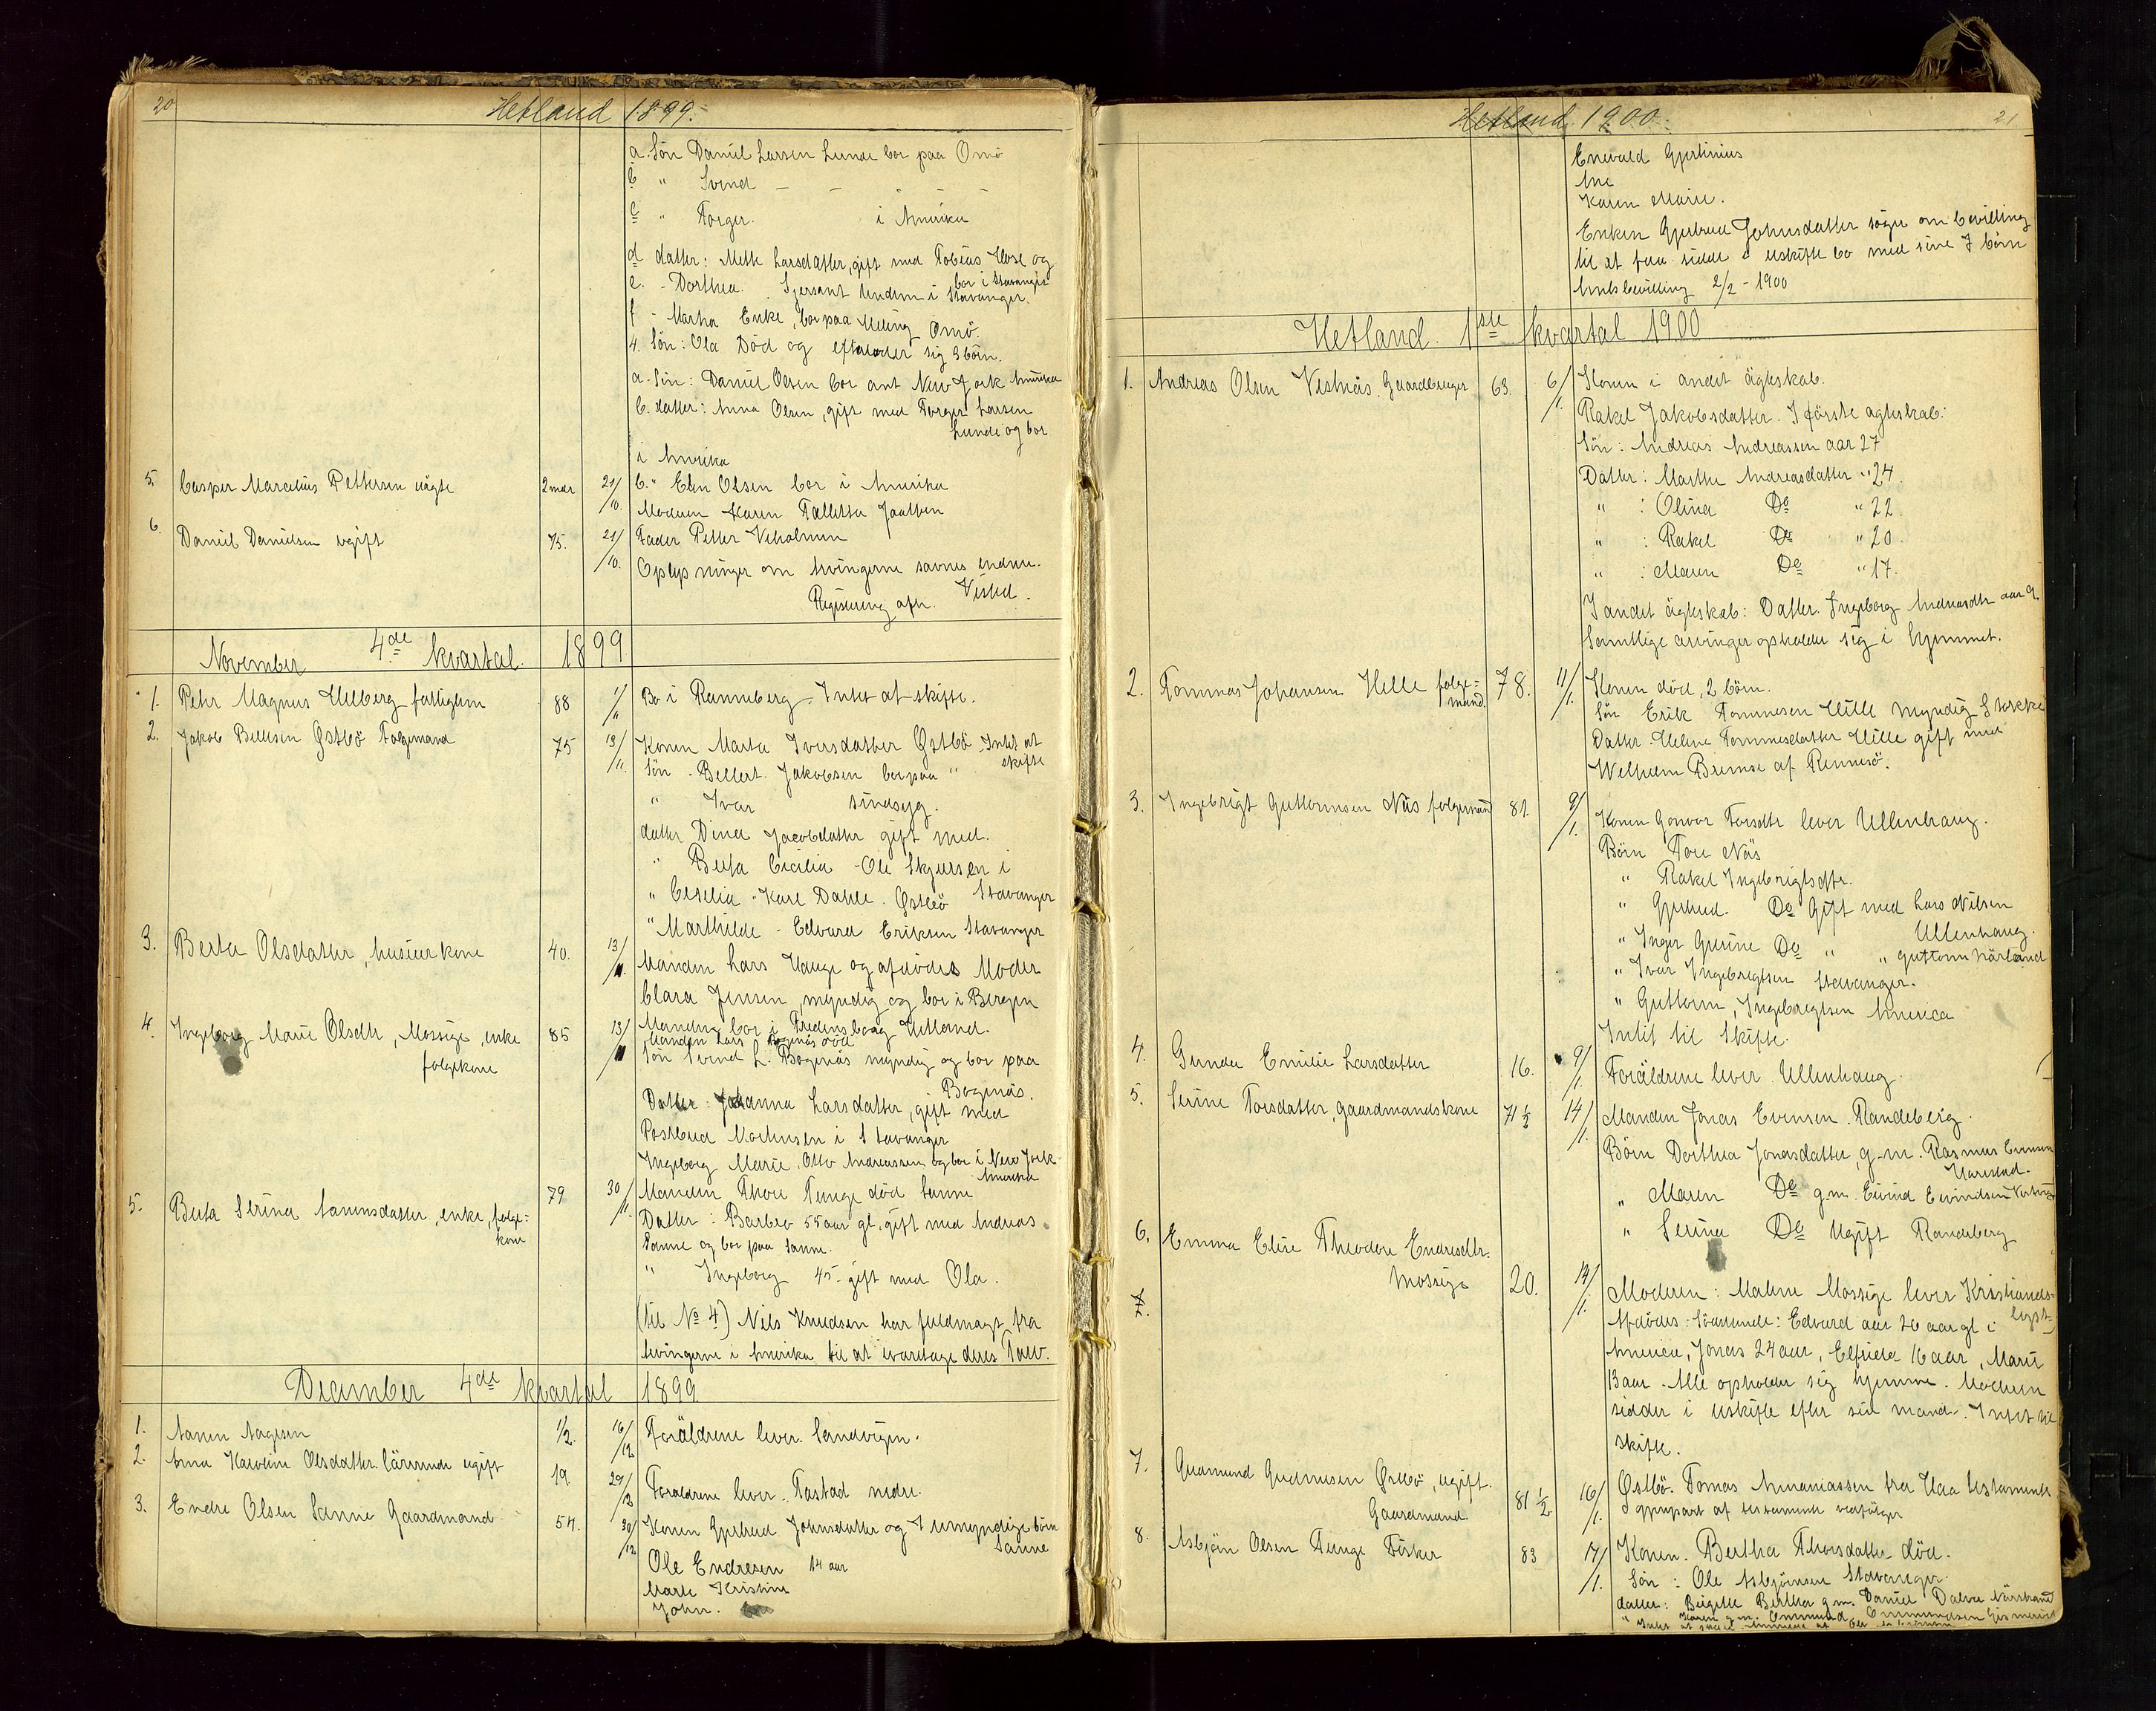 20
Hetland 1899.
a. Søn Daniel Larsen Lunde bor paa Omö
b " Svend — — — —
c " Torger. i Amerika
d datter: Mette Larsdatter, gift med Tobias Hove og
bor i Stavanger
e. - Dorthea. Sjersant Undem i Stavanger.
f - Martha Enke, bor paa Meling Omö.
4. Søn: Ola Död og efterlader sig 3 börn.
a. Søn: Daniel Olsen bor ant New York Amerika
b. datter: Anna Olsen, gift med Torger Larsen
Lunde og bor
i Amerika
5. Casper Marcelius Pettersen uägte 2 mdr 21/10. C. " Elen Olsen bor i Amerika
Moderen Karen Taletta Jaatten
6. Daniel Danielsen ugift 75. 21/10. Fader Petter Veholmen
Oplysninger om Arvingerne savnes endnu.
Registrering afh. Visted.
November 4de kvartal 1899
1. Pehr Magnus Ulberg fattiglem 88 1/11 Bo i Ranneberg. Intet at skifte.
2. Jakob Bellesen Østbö Folgemand 75 13/11. Konen Marta Iversdatter Østbö Intet at
skifte
Søn - Bellert. Jakobsen bor paa "
" Ivar sindsyg.
datter Dina Jacobdatter gift med.
" Berta Cicilia - Ole Skjelsen i
Stavanger
" Ceselia - Karl Dahle. Østbö
" Marthilde - Edvard Eriksen Stavanger
3. Berta Olsdatter, husmerkone 40. 13/11. Manden Lars Hauge og afdödes Moder
Clara Jensen, myndig og bor i Bergen
Manden bor i Fredensborg Hetland.
4. Ingeborg Marie Olsdtr, Mossige, enke
folgekone 85 13/11 Manden Lars Bogenäs död
Søn Svend L. Bogenäs myndig og bor paa
Bogenäs.
Datter: Johanna Larsdatter, gift med
Postbud Mortensen i Stavanger
Ingeborg Marie, Otto Andreassen og bor i New York
Amerika
5. Berta Serina Larsdatter, enke, folge=
kone 79 30/11. Manden Thore Tunge död Sanne
Datter: Barbro 55 aar gl. gift med Andreas
Sanne og bor paa Sanne.
" Ingeborg 45 - gift med Ola.
(til No 4) Nils Knudsen har fuldmagt fra
Arvingerne i Amerika til at ivaretage deres Tarv.
December 4de kvartal 1899
1. Aanen Aagesen 1/2. 16/12 Foräldrene lever. Sandvigen.
2. Anna Karoline Olsdatter lärerinde ugift 19 29/12 Foräldrene lever. Tastad nedre.
3. Endre Olsen Sanne Gaardmand 54. 30/12 Konen Gjertrud Johnsdatter og 7 umyndige börn
Sanne
Ole Endresen 14 aar
Marte Kristine
John.
Hetland 1900.
21
Enevald Gjertinius
Ane
Karen Marie.
Enken Gjertrud Johnsdatter söger om bevilling
til at faa sidde i uskifte bo med sine 7 börn
Amtsbevilling 2/2 - 1900
Hetland. 1ste kvartal 1900
1. Andreas Olsen Vestnäs. Gaardbruger 63. 6/1. Konen i andet ägteskab.
Rakel Jakobsdatter. I förste ägteskab:
Søn: Andreas Andreassen aar 27
Datter: Marthe Andreasdatter " 24.
" : Olina Do " 22.
" : Rakel Do " 20.
" : Maren Do " 17.
I andet ägteskab: Datter. Ingeborg Andreasdtr aar 9.
Samtlige arvinger opholder sig i hjemmet.
2. Tommas Johansen Helle folge=
mand. 78. 11/1. Konen död, 2 börn.
Søn Erik Tommesen Hille myndig Stokke
Datter. Helene Tommesdatter Hille gift med
Welhelm Bremse af Rennesö.
3. Ingebrigt Guttormsen Näs folgemand 81. 9/1. Konen Gonvor Torsdtr lever Ullenhaug.
Börn Tore Näs
" Rakel Ingebrigtsdtr.
" Gjertrud. Do Gift med Lars Nilsen
Ullenhaug.
" Inger Gurine Do " " Guttorm Härland
" Ivar Ingebregtsen Stavanger.
" Guttorm, Ingebregtsen America
Intet til Skifte.
4. Gunda Emilie Larsdatter 16. 9/1. Foräldrene lever. Ullenhaug.
5. Serine Torsdatter, gaardmandskone 71 1/2 14/1. Manden Jonas Evensen. Randeberg.
Börn Dorthea Jonasdatter, g.m. Rasmus Evensen
Harestad.
" Maren Do g.m. Eivind Eivindsen
" Serina Do Ugift Randeberg
6. Emma Elise Theodore Endresdtr.
Mossige 20. 14/1. Moderen: Malene Mossige lever Kristiands=
lyst
7. Afdödes Södskende: Edvard aar 26 aar gl i
America, Jonas 24 aar, Elfrida 16 aar, Marie
13 aar. Alle opholder sig hjemme. Moderen
sidder i uskifte efter sin mand. Intet til
skifte.
7. Gudmund Gudmusen Østbö, ugift.
Gaardmand 81 1/2 16/1. Østbö. Tomas Ananiassen fra Haa testamente
Gjenpart af testamente vedfölger
8. Asbjörn Olsen Tunge Fisker 83 17/1. Konen. Bertha Thorsdatter död.
Søn: Ole Asbjörnsen Stavanger.
datter: Birgitte Bertha g.m. Daniel
" Karen g.m. Ommund Ommundsen